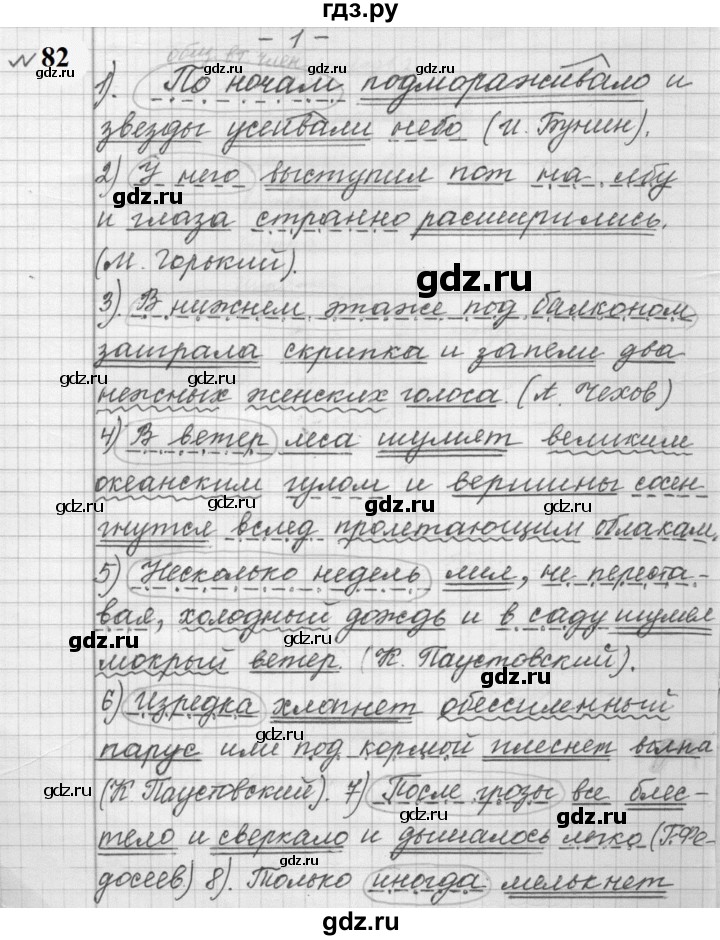 гдз.ру
№ 82
- 1 -
общ. вт. член
1). По ночам подмораживало и
звезды усеивали небо (И. Бунин).
2) У него выступил пот на лбу
и глаза странно расширились.
(М. Горький).
3). В нижнем этаже под балконом
заиграла скрипка и запели два
нежных женских голоса. (А. Чехов)
4) В ветер леса шумят великим
океанским гулом и вершины сосен
гнутся вслед пролетающим облакам.
5) Несколько недель лил, не переста-
вая, холодный дождь и в саду шумел
мокрый ветер. (К. Паустовский).
6) Изредка хлопнет обессиленный
парус или под кормой плеснет волна
(К Паустовский). 7) После грозы все блес-
тело и сверкало и дышалось легко (Г. Фе-
досеев) 8). Только иногда мелькнет
gdz.ru